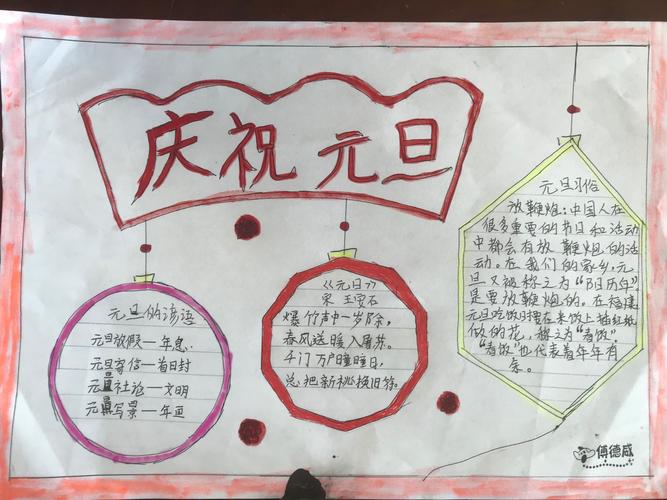 庆祝元旦
元旦的谚语
元旦放假一年息
元旦寄信一首日封
元旦社论一文明
元旦写景一年画
《元旦》
宋 王安石
爆竹声中一岁除,
春风送暖入屠苏。
千门万户瞳瞳日,
总把新桃换旧符。
元旦习俗
放鞭炮:中国人在
很多重要的节日和活动
中都会有放鞭炮的活
动。在我们的家乡,元
旦又被称之为“阳历年”
是要放鞭炮的。在福建
元旦吃饭时摆在米饭上插红纸
做的花,称之为“春饭”.
“春饭”也代表着年年有
余。
傅德威